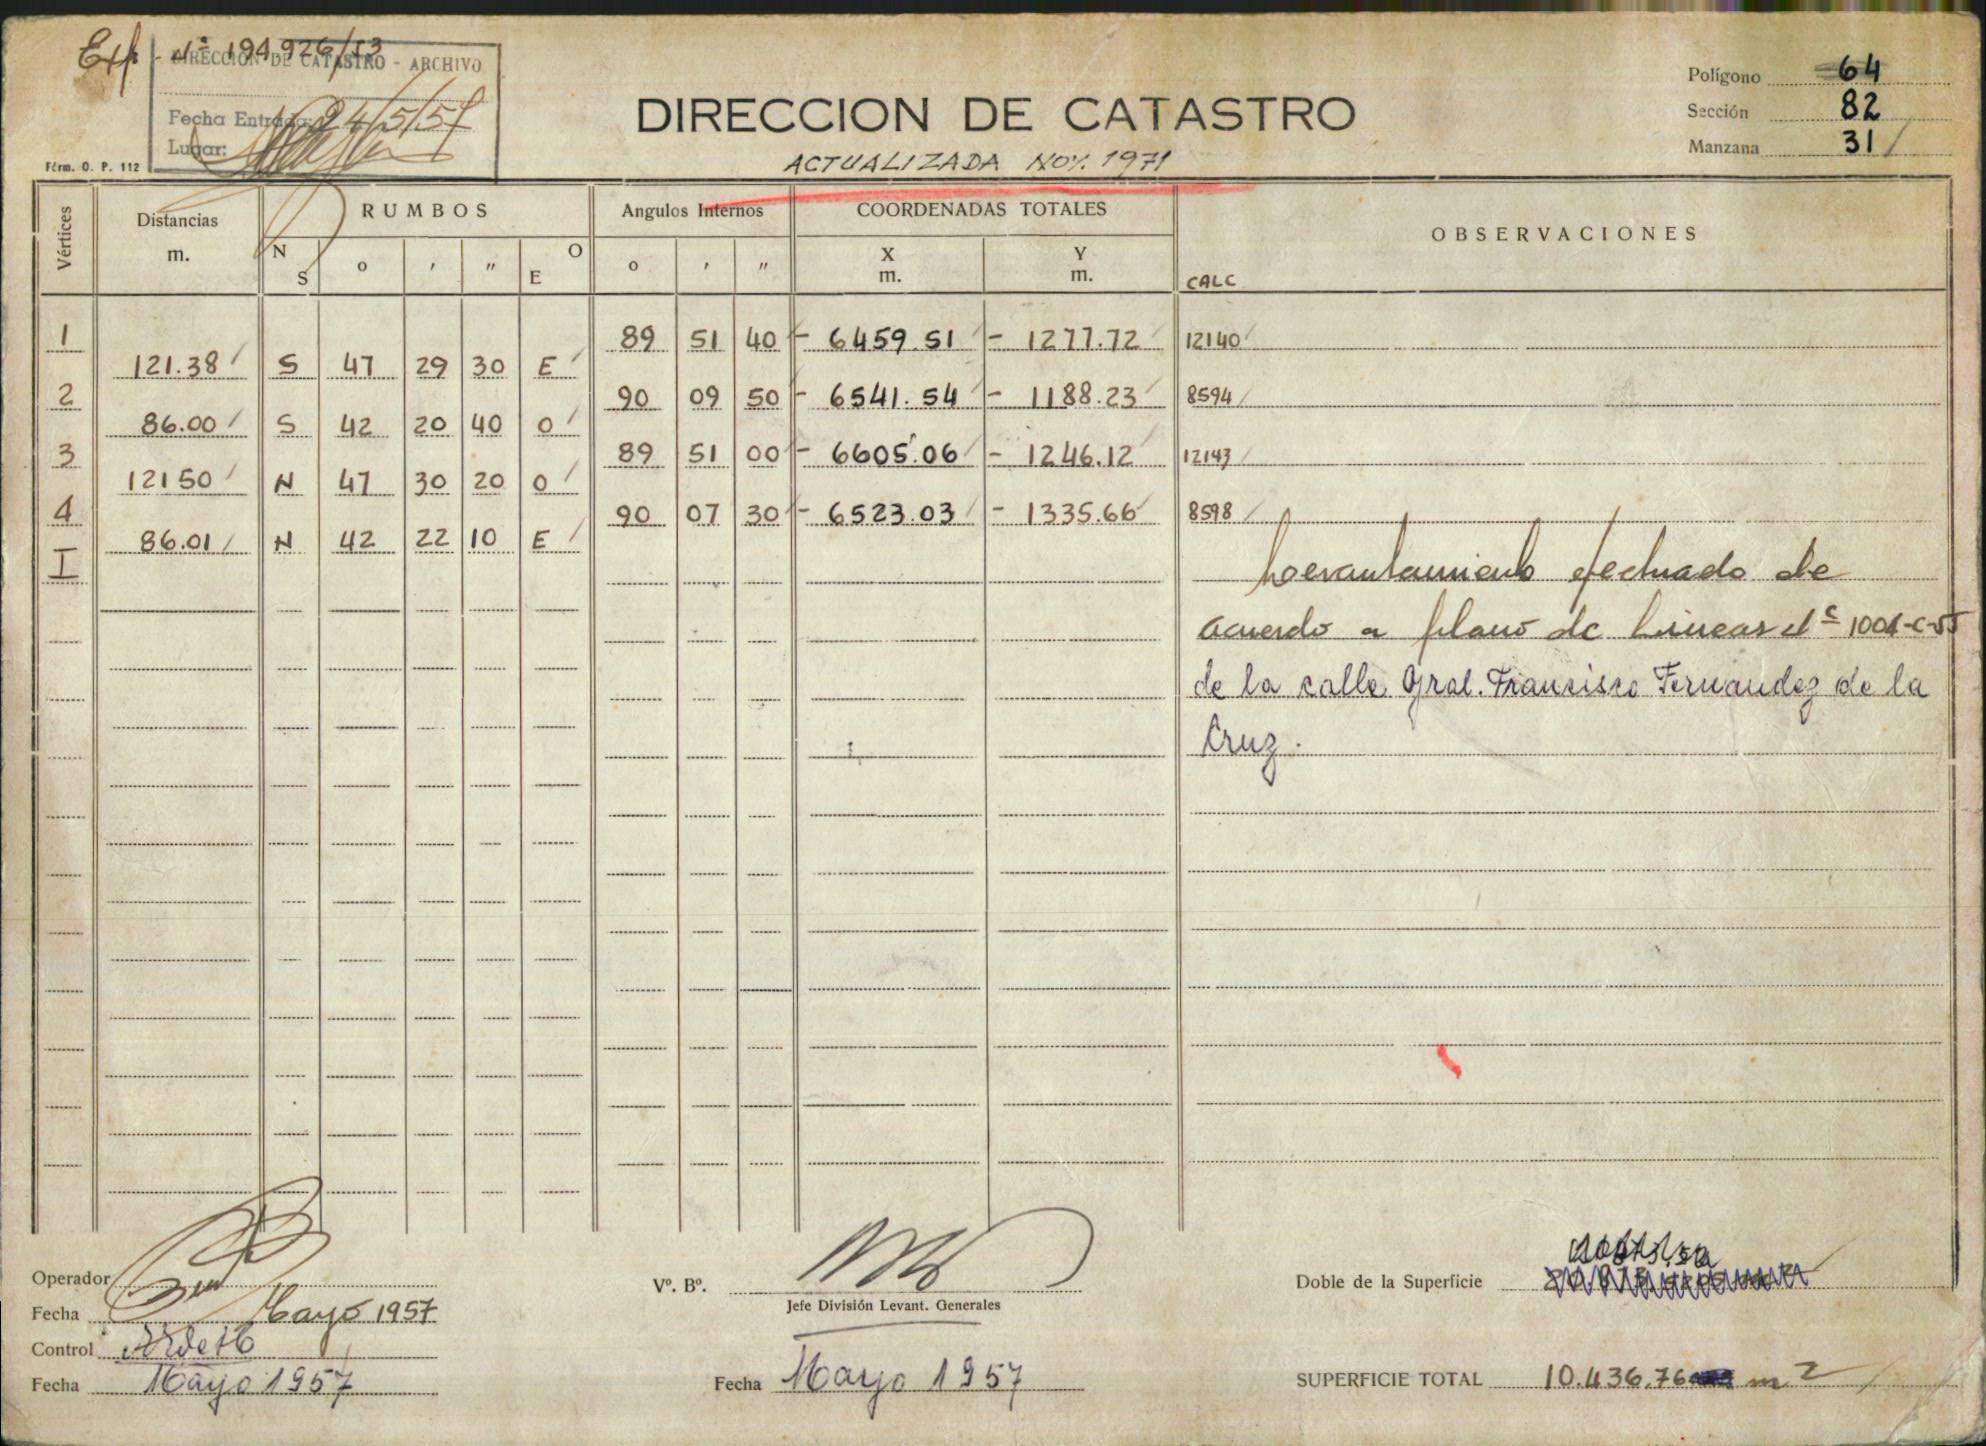 Exp. Nº 194.926/53
DIRECCIÓN DE CATASTRO - ARCHIVO
Fecha Entrada: 24/5/57
Lugar:
Fórm. O. P. 112
DIRECCION DE CATASTRO
ACTUALIZADA NOV. 1971
Polígono 64
Sección 82
Manzana 31
Vértices Distancias m. RUMBOS N S o ' " O E Angulos Internos o ' " COORDENADAS TOTALES X m. Y m. OBSERVACIONES
CALC
1 89 51 40 - 6459.51 - 1277.72 12140
121.38 S 47 29 30 E
2 90 09 50 - 6541.54 - 1188.23 8594
86.00 S 42 20 40 O
3 89 51 00 - 6605.06 - 1246.12 12143
121 50 N 47 30 20 O
4 90 07 30 - 6523.03 - 1335.66 8598
86.01 N 42 22 10 E
I
Levantamiento efectuado de
acuerdo a plano de Lineas Nº 1004-C-55
de la calle Gral. Francisco Fernandez de la
Cruz.
Operador
Fecha Mayo 1957
Control
Fecha Mayo 1957
Vº. Bº.
Jefe División Levant. Generales
Fecha Mayo 1957
Doble de la Superficie
SUPERFICIE TOTAL 10.436,76 m2